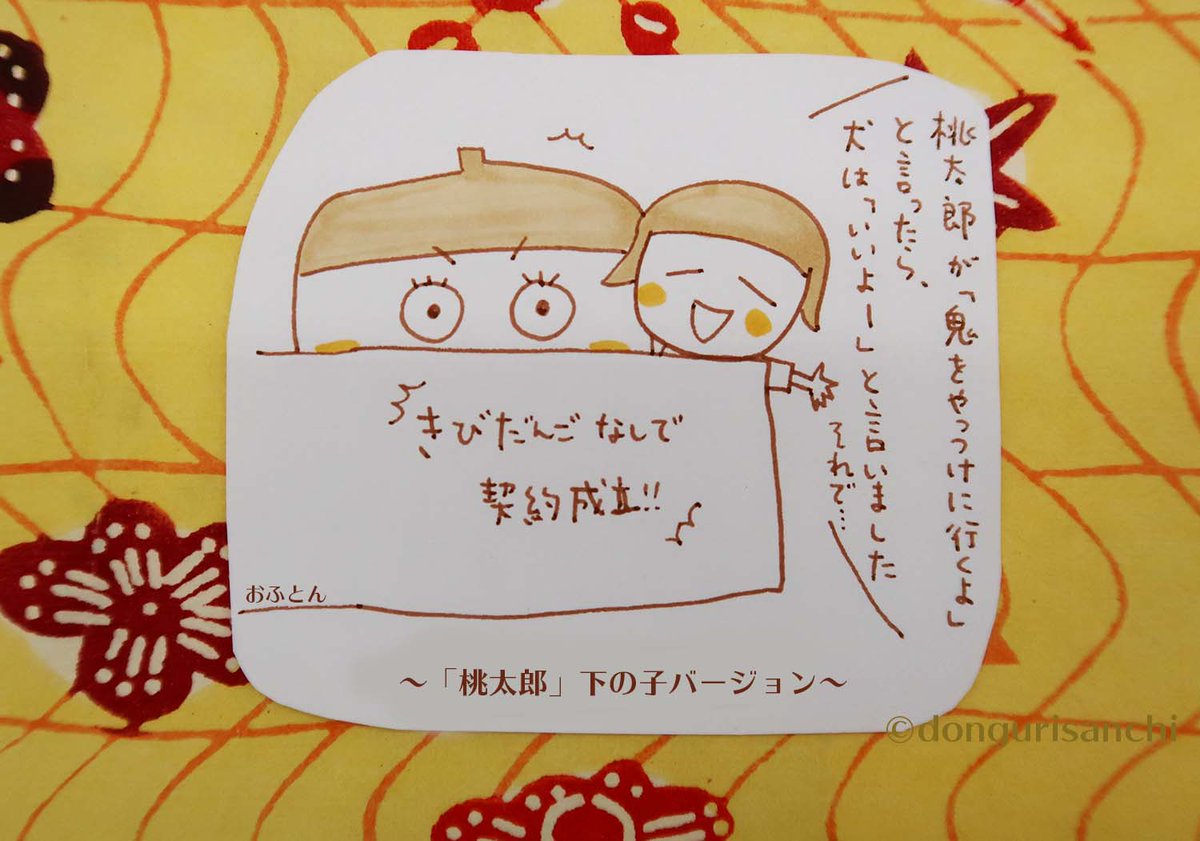 桃太郎が「鬼をやっつけに行くよ」
と言ったら、
犬は「いいよー」と言いました
それで…
きびだんごなしで
契約成立!!
おふとん
〜「桃太郎」下の子バージョン〜
©dongurisanchi